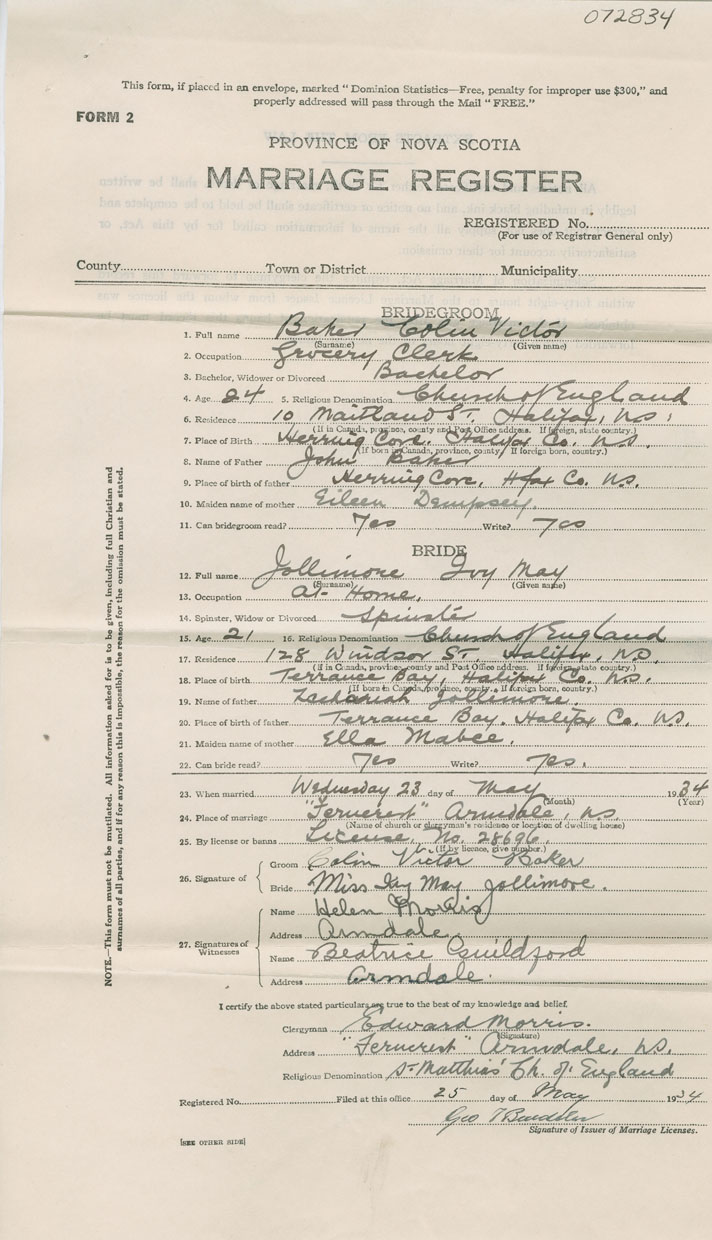 072834
This form, if placed in an envelope, marked "Dominion Statistics—Free, penalty for improper use $300," and
properly addressed will pass through the Mail "FREE."
FORM 2
PROVINCE OF NOVA SCOTIA
MARRIAGE REGISTER
REGISTERED No.
(For use of Registrar General only)
County Town or District Municipality
BRIDEGROOM
1. Full name Baker Colin Victor
(Surname) (Given name)
2. Occupation Grocery Clerk
3. Bachelor, Widower or Divorced Bachelor
4. Age 24 5. Religious Denomination Church of England
6. Residence 10 Maitland St. Halifax, N.S.
(If in Canada, province, county and Post Office address. If foreign, state country.)
7. Place of Birth Herring Cove. Halifax Co. N.S.
(If born in Canada, province, county. If foreign born, country.)
8. Name of Father John Baker
9. Place of birth of father Herring Cove, Hfax Co. N.S.
10. Maiden name of mother Eileen Dempsey.
11. Can bridegroom read? Yes Write? Yes
BRIDE
12. Full name Jollimore Ivy May
(Surname) (Given name)
13. Occupation At Home.
14. Spinster, Widow or Divorced Spinster
15. Age 21 16. Religious Denomination Church of England
17. Residence 128 Windsor St. Halifax, N.S.
(If in Canada, province, county and Post Office address. If foreign, state country.)
18. Place of birth Terrance Bay, Halifax Co. N.S.
(If born in Canada, province, county. If foreign born, country.)
19. Name of father Zachariah Jollimore.
20. Place of birth of father Terrance Bay. Halifax Co. N.S.
21. Maiden name of mother Ella Mabee.
22. Can bride read? Yes Write? Yes.
23. When married Wednesday 23 day of May 1934
(Month) (Year)
24. Place of marriage "Ferncrest" Armdale, N.S.
(Name of church or clergyman's residence or location of dwelling house)
25. By license or banns License, No. 28696.
(If by licence, give number.)
26. Signature of
Groom Colin Victor Baker
Bride Miss Ivy May Jollimore.
27. Signatures of Witnesses
Name Helen Morris
Address Armdale
Name Beatrice Guildford
Address Armdale.
I certify the above stated particulars are true to the best of my knowledge and belief.
Clergyman Edward Morris.
(Signature)
Address "Ferncrest" Armdale, N.S.
Religious Denomination St Matthias' Ch. of England
Registered No. Filed at this office 25 day of May 1934
Geo
Signature of Issuer of Marriage Licenses.
[SEE OTHER SIDE]
NOTE.—This form must not be mutilated. All information asked for is to be given, including full Christian and
surnames of all parties, and if for any reason this is impossible, the reason for the omission must be stated.